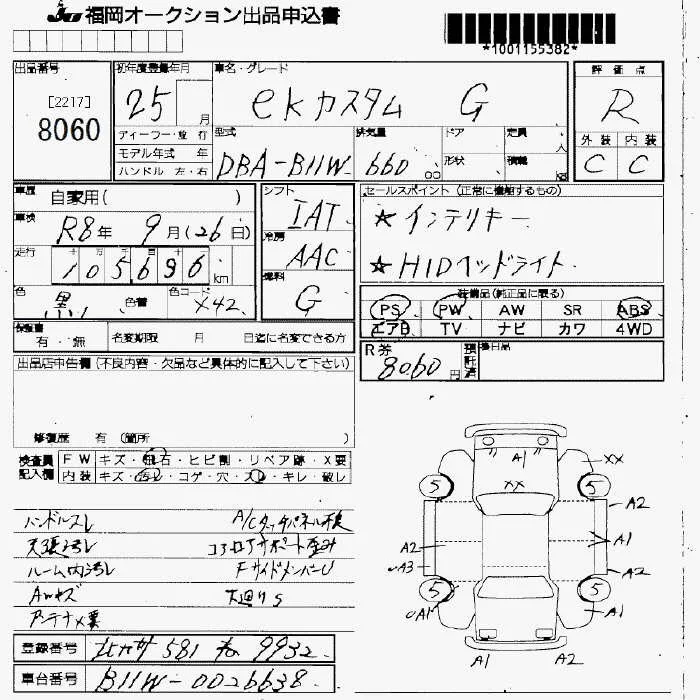 JU 福岡オークション出品申込書
*1001155382*
出品番号
[2217]
8060
初年度登録年月
25 月
ディーラー・並行
モデル年式 年
ハンドル 左・右
車名・グレード
ekカスタム G
型式
DBA-B11W
排気量
660 cc
ドア
形状
定員
人
積載
kg
評価点
R
外装 内装
C C
車歴
自家用( )
車検
R8年 9月(26日)
走行
105696 km
色
黒
色替
色コード
X42
シフト
IAT
冷房
AAC
燃料
G
セールスポイント (正常に機能するもの)
★インテリキー
★HIDヘッドライト
装備品(純正品に限る)
PS PW AW SR ABS
エアB TV ナビ カワ 4WD
保証書
有・無
名変期限 月 日迄に名変できる方
R券
8060円
預託済
後日品
出品店申告欄 (不良内容・欠品など具体的に記入して下さい)
修復歴 有 (箇所 )
検査員記入欄
FW キズ・飛石・ヒビ割・リペア跡・X要
内装 キズ・汚レ・コゲ・穴・スレ・キレ・破レ
ハンドルスレ
A/Cタッチパネル不良
天張汚レ
コアロアサポート歪み
ルーム内汚レ
FサイドメンバーU
AWキズ
下廻りS
アンテナX要
A1
XX
XX
5 5
A2
A2
A1
A3
A2
5 5
A1
A1
A1
A2
登録番号
581 9932
車台番号
B11W-0026638